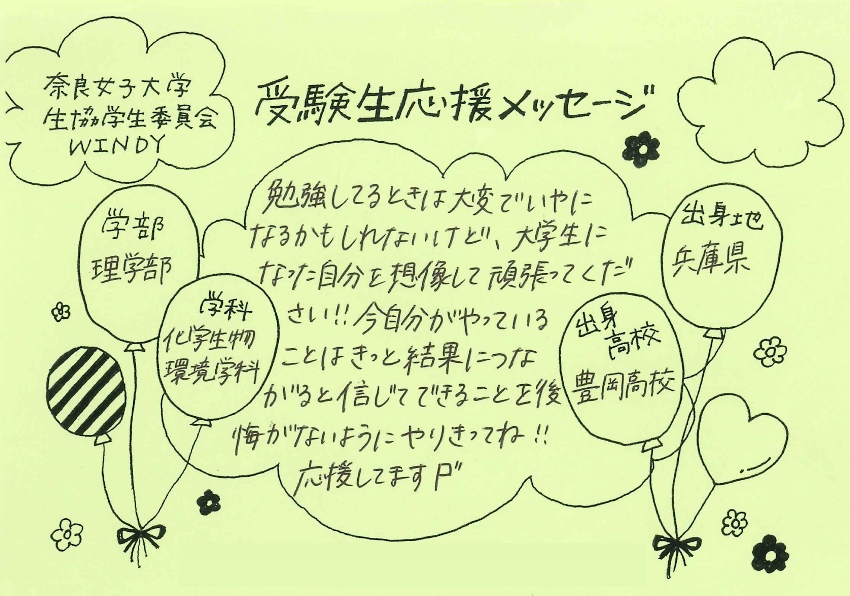 奈良女子大学
生協学生委員会
WINDY
受験生応援メッセージ
学部
理学部
学科
化学生物
環境学科
勉強してるときは大変でいやに
なるかもしれないけど、大学生に
なった自分を想像して頑張ってくだ
さい!!今自分がやっている
ことはきっと結果につな
がると信じてできることを後
悔がないようにやりきってね!!
応援してます
出身地
兵庫県
出身
高校
豊岡高校